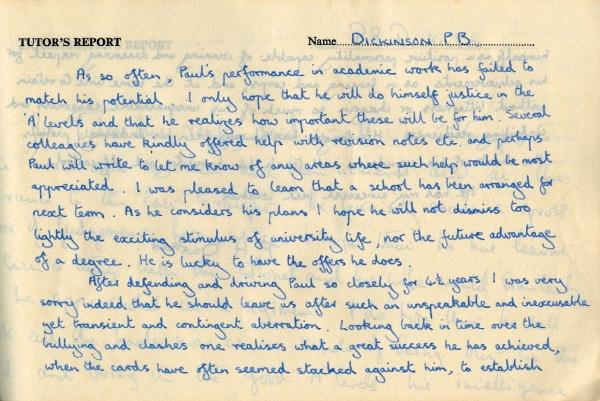 TUTOR'S REPORT Name DICKINSON P.B.
As so often, Paul's performance in academic work has failed to
match his potential. I only hope that he will do himself justice in the
'A' levels and that he realizes how important these will be for him. Several
colleagues have kindly offered help with revision notes etc. and perhaps
Paul will write to let me know of any areas where such help would be most
appreciated. I was pleased to learn that a school has been arranged for
next term. As he considers his plans I hope he will not dismiss too
lightly the exciting stimulus of university life, nor the future advantage
of a degree. He is lucky to have the offers he does.
After defending and driving Paul so closely for 4½ years I was very
sorry indeed that he should leave us after such an unspeakable and inexcusable
yet transient and contingent aberration. Looking back in time over the
bullying and clashes one realises what a great success he has achieved,
when the cards have often seemed stacked against him, to establish